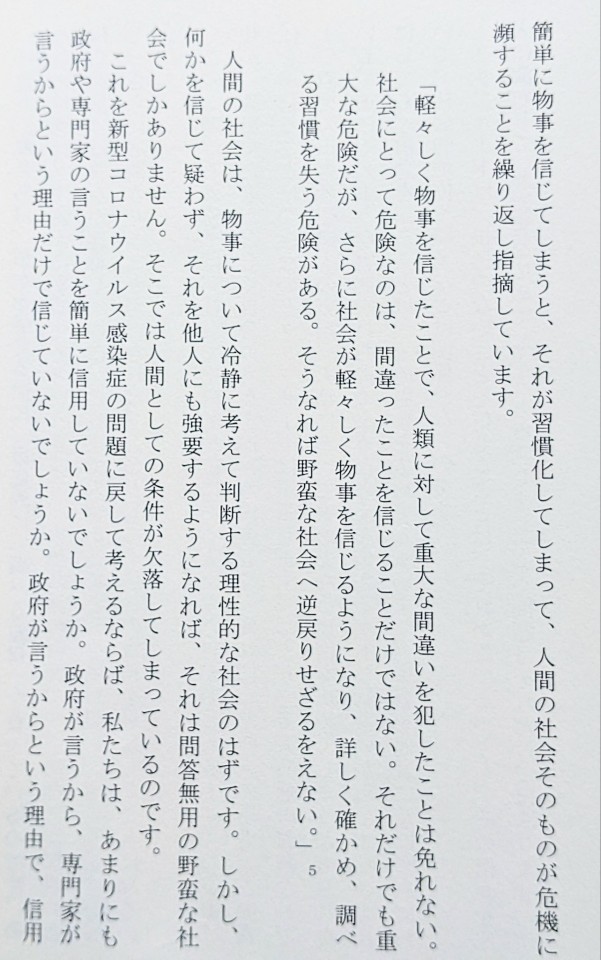 簡単に物事を信じてしまうと、それが習慣化してしまって、人間の社会そのものが危機に
瀕することを繰り返し指摘しています。
「軽々しく物事を信じたことで、人類に対して重大な間違いを犯したことは免れない。
社会にとって危険なのは、間違ったことを信じることだけではない。それだけでも重
大な危険だが、さらに社会が軽々しく物事を信じるようになり、詳しく確かめ、調べ
る習慣を失う危険がある。そうなれば野蛮な社会へ逆戻りせざるをえない。」5
人間の社会は、物事について冷静に考えて判断する理性的な社会のはずです。しかし、
何かを信じて疑わず、それを他人にも強要するようになれば、それは問答無用の野蛮な社
会でしかありません。そこでは人間としての条件が欠落してしまっているのです。
これを新型コロナウイルス感染症の問題に戻して考えるならば、私たちは、あまりにも
政府や専門家の言うことを簡単に信用していないでしょうか。政府が言うから、専門家が
言うからという理由だけで信じていないでしょうか。政府が言うからという理由で、信用